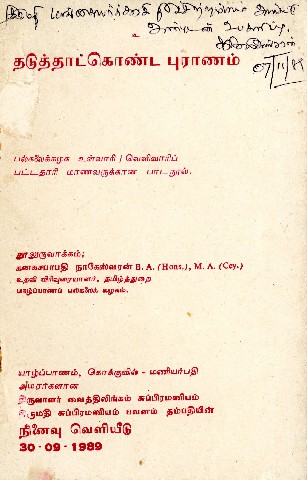 உ
தடுத்தாட்கொண்ட புராணம்
07/11/89
பல்கலைக்கழக உள்வாரி / வெளிவாரிப்
பட்டதாரி மாணவருக்கான பாடநூல்.
நூலுருவாக்கம்;
கனகசபாபதி நாகேஸ்வரன் B. A. (Hons.), M. A. (Cey.)
உதவி விரிவுரையாளர், தமிழ்த்துறை
யாழ்ப்பாணப் பல்கலைக் கழகம்.
யாழ்ப்பாணம், கொக்குவில் - மணியர்பதி
அமரர்களான
திருவாளர் வைத்திலிங்கம் சுப்பிரமணியம்
திருமதி சுப்பிரமணியம் பவளம் தம்பதியின்
நினைவு வெளியீடு
30 - 09 - 1989